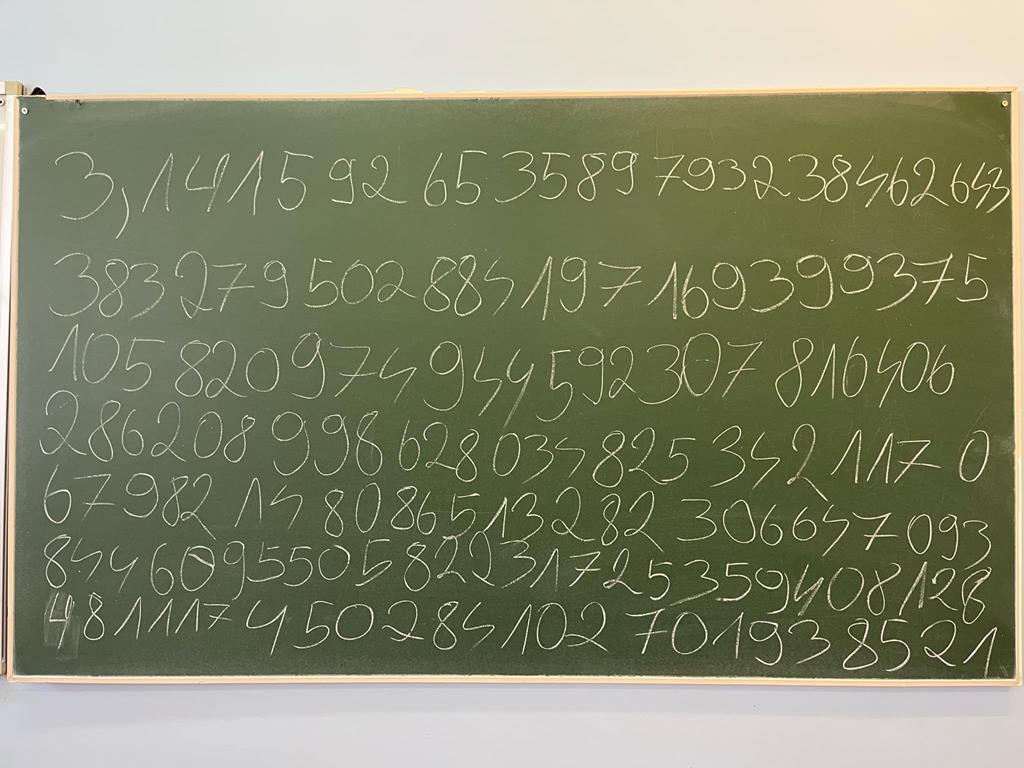 3,1415 92 65 3589 793238462643
383279502884197 169399375
105 820974944592307 816406
286208 998 628034825 342 117 0
67982 14 8086513282 306647 093
844609550582231725359408128
48111745028410270193 8521